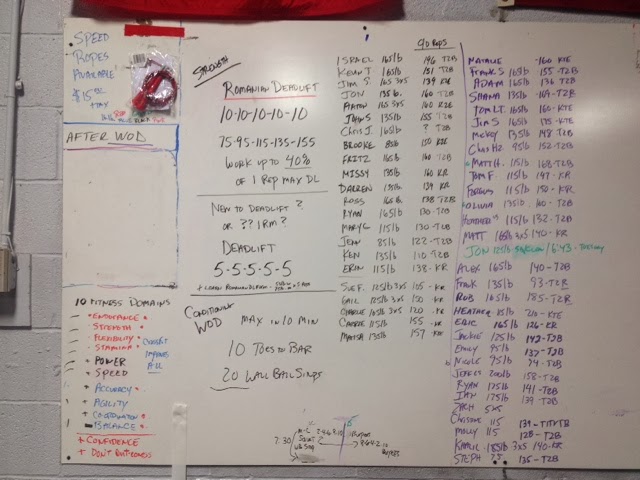 SPEED
ROPES
AVAILABLE
$15.00
AFTER WOD
10 FITNESS DOMAINS
- ENDURANCE
- STRENGTH
- FLEXIBILITY
- STAMINA
+ POWER
+ SPEED
+ ACCURACY
+ AGILITY
+ COORDINATION
BALANCE
CROSSFIT
IMPROVES
ALL
+ CONFIDENCE
STRENGTH
ROMANIAN DEADLIFT
10-10-10-10-10
75-95-115-135-155
WORK UP TO 40%
OF 1 REP MAX DL
NEW TO DEADLIFT?
OR ?? 1RM?
DEADLIFT
5-5-5-5-5
CONDITIONING
WOD MAX IN 10 MIN
10 TOES TO BAR
20 WALL BALL SHOTS
7:30
REPS
ISRAEL 165lb 196 T2B
KENT T. 165lb 151 T2B
JIM S. 165 3x5 139 KR
JON 135lb. 160 T2B
AARON 165 3x5 160 K2E
JOHN S 135lb 155 T2B
CHRIS J. 165lb ? T2B
BROOKE 85lb 150 KR
FRITZ 165lb 160 T2B
MISSY 135lb 160 KR
DARREN 135lb 139 KR
ROSS 165lb 138 T2B
RYAN 165lb 130-T2B
MARY C 115lb 130-T2B
JENN 85lb 122-T2B
KEN 135lb 110-T2B
ERIN 115lb 138-KR
SUE F. 125lb 3x5 105-KR
GAIL 125lb 3x5 150-KR
CHARLIE 165lb 3x5 120-KR
CARRIE 115lb 155-KR
MARISA 135lb 157 KR
NATALIE 160-KTE
FRANK S 165lb 155-T2B
ADAM 165lb 136-T2B
SHANA 135lb 169-T2B
TOM LT. 165lb 160-KTE
JIM S 165lb 175-KTE
MCKOY 135lb 148-T2B
CHAS HZ 95lb 152-T2B
MATT H. 115lb 168-T2B
TOM F. 115lb 147-KR
FERGUS 115lb 150-KR
OLIVIA 135lb 160-T2B
HEATHER 115lb 132-T2B
MATT 165lb 3x5 140-KR
JON 125lb 6:43
ALEX 165lb 140-T2B
FRANK 135lb 93-T2B
ROB 165lb 185-T2B
HEATHER 115lb 210-KTE
ERIC 165lb 126-KR
JACKIE 125lb 142-T2B
EMILY 95lb 137-T2B
NICOLE 95lb 74-T2B
JEFFREY 200lb 158-T2B
RYAN 175lb 141-T2B
IAN 175lb 139-T2B
ZACH 5x5
MOLLY 115 128-T2B
KAHLIL 185lb 3x5 140-KR
STEPH 75 135-T2B